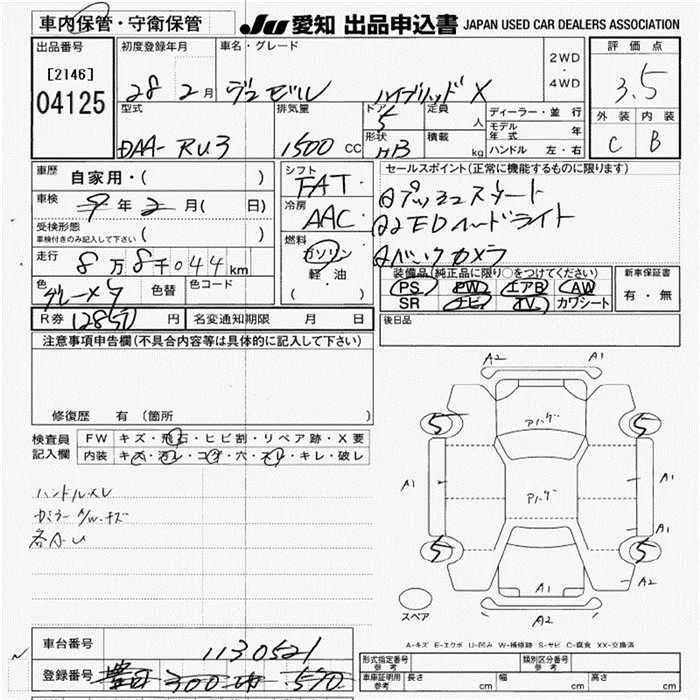 車内保管・守衛保管
JU 愛知 出品申込書 JAPAN USED CAR DEALERS ASSOCIATION
出品番号
[2146]
04125
初度登録年月
28 2月
車名・グレード
ヴェゼル ハイブリッド X
2WD
・
4WD
評価点
3.5
外装 内装
C B
型式
DAA-RU3
排気量
1500 CC
ドア
5
定員
人
形状
HB
積載
kg
ディーラー・並行
モデル年式 年
ハンドル 左・右
車歴
自家用・( )
車検
9年2月( 日)
受検形態
車検付きのみ記入して下さい ( )
走行
8万8千044km
色
グレーメタ
色替
色コード
シフト
FAT
冷房
AAC
燃料
ガソリン
軽・油
( )
セールスポイント(正常に機能するものに限ります)
プッシュスタート
LEDヘッドライト
バックカメラ
装備品(純正品に限り○をつけてください)
PS PW エアB AW
SR ナビ TV カワシート
新車保証書
有・無
R券 12850 円
名変通知期限 月 日
後日品
注意事項申告欄(不具合内容等は具体的に記入して下さい)
修復歴 有 (箇所 )
検査員記入欄
FW キズ・飛石・ヒビ割・リペア跡・X要
内装 キズ・汚レ・コゲ・穴・スレ・キレ・破レ
ハンドルスレ
カミラー A/W・キズ
各A・U
A2 A1
5 5
アハゲ
A1 アハゲ A1
A1
5 5
A1 A2
A2
スペア
A-キズ E-エクボ U-凹み W-補修跡 S-サビ C-腐食 XX-交換済
車台番号
1130521
登録番号
豊田 300 570
形式指定番号 参考
類別区分番号 参考
車庫証明用 参考
長さ cm
幅 cm
高さ cm